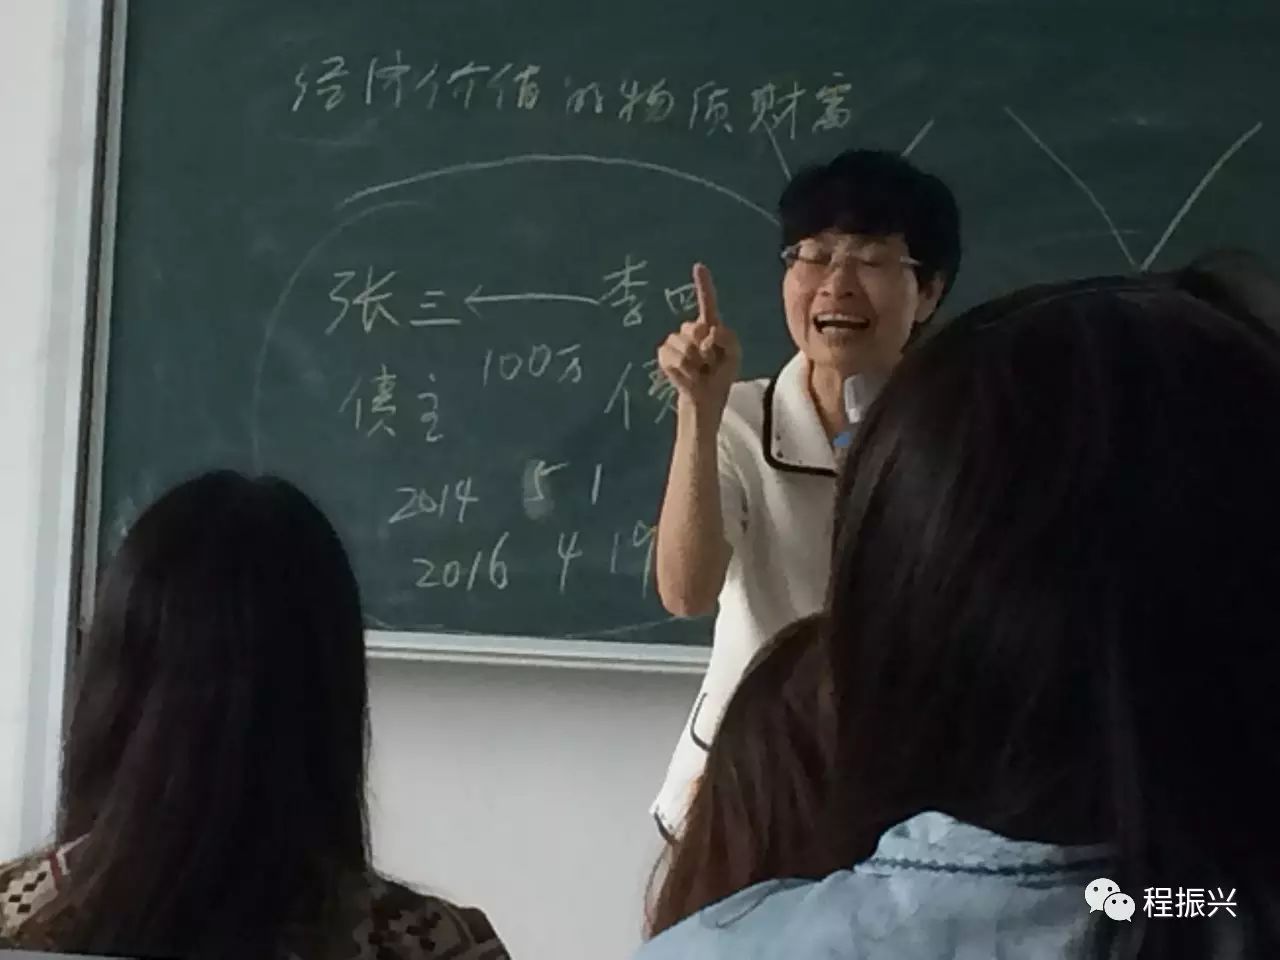 经济价值的物质财富
张三 ← 李四
100万
债主 债
2014 5 1
2016 4 19
程振兴